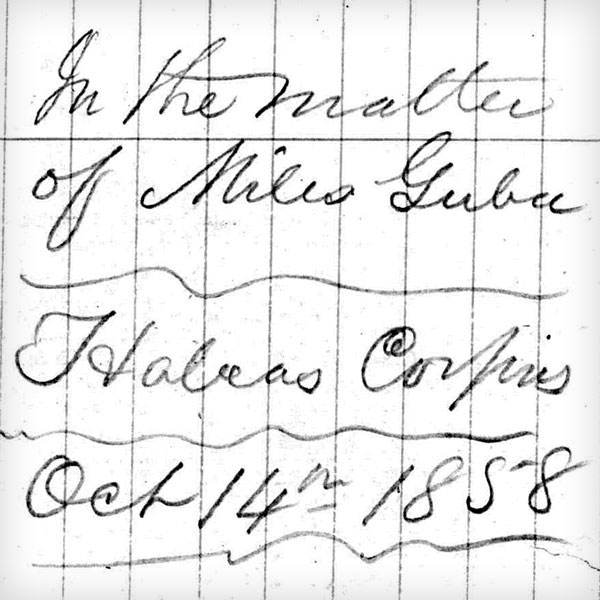 In the matter
of Miles Guba
Habeas Corpus
Oct 14th 1858